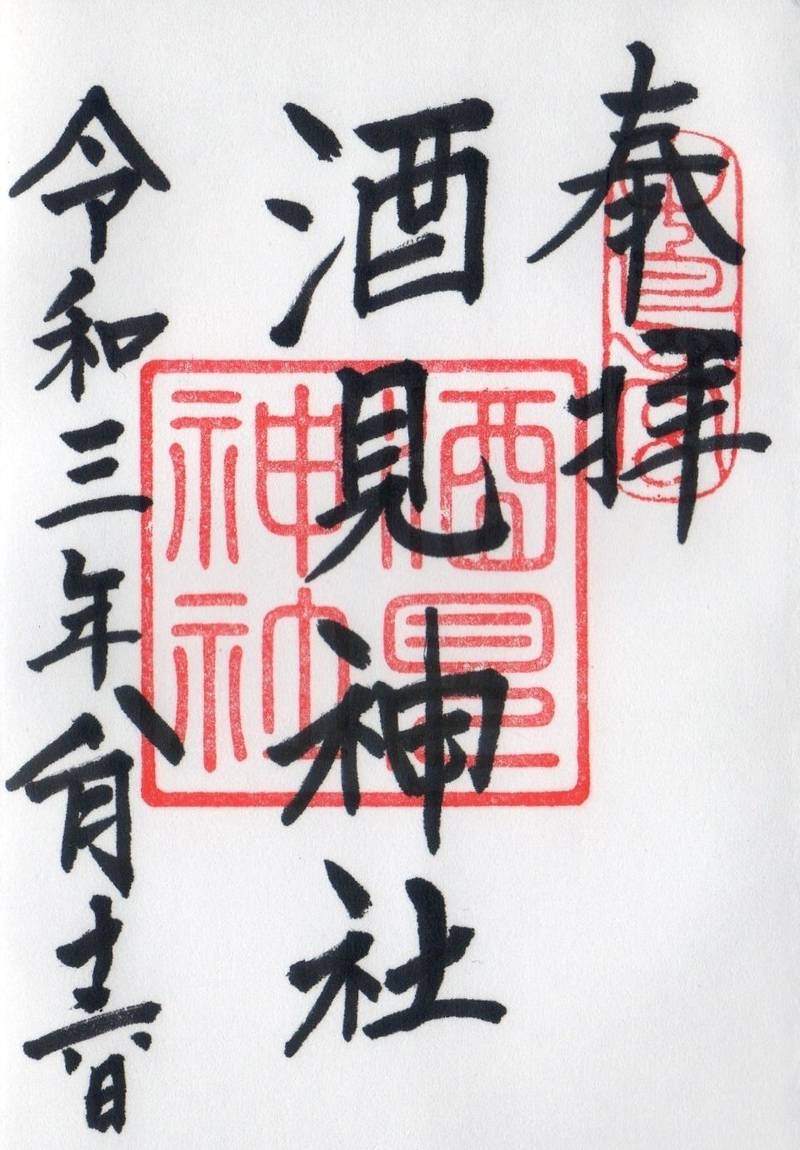 奉拝
酒見神社
令和三年八月十六日
酒見神社